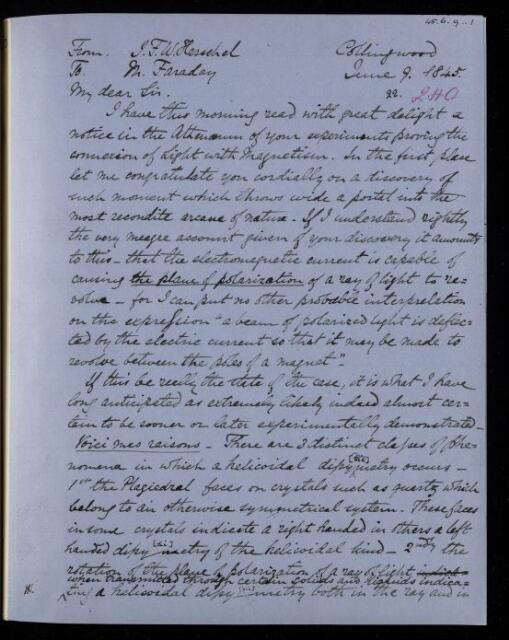 45.6.9..1
From. J.F.W. Herschel Collingwood
To. M. Faraday June 9. 1845.
My dear Sir. 22. 240
I have this morning read with great delight a
notice in the Athenæum of your experiments proving the
connexion of Light with Magnetism. In the first place
let me congratulate you cordially on a discovery of
such moment which throws wide a portal into the
most recondite arcana of nature. If I understand rightly
the very meagre account given of your discovery it amounts
to this - that the electromagnetic current is capable of
causing the plane of polarization of a ray of light to re=
volve - for I can put no other probable interpretation
on the expression "a beam of polarized light is deflec=
ted by the electric current so that it may be made to
revolve between the poles of a magnet".
If this be really the state of the case, it is what I have
long anticipated as extremely likely indeed almost cer=
tain to be sooner or later experimentally demonstrated -
Voici mes raisons - There are 3 distinct classes of phe=
nomena in which a helicoidal dissymetry occurs -
1st the Plagiedral faces on crystals such as quartz which
belong to an otherwise symmetrical system. These faces
in some crystals indicate a right handed in others a left
handed dissymetry of the helicoidal kind - 2ndly the
rotation of the plane of polarization of a ray of light indicat
when transmitted through certain solids and liquids indica=
ting a helicoidal dissymetry both in the ray and in